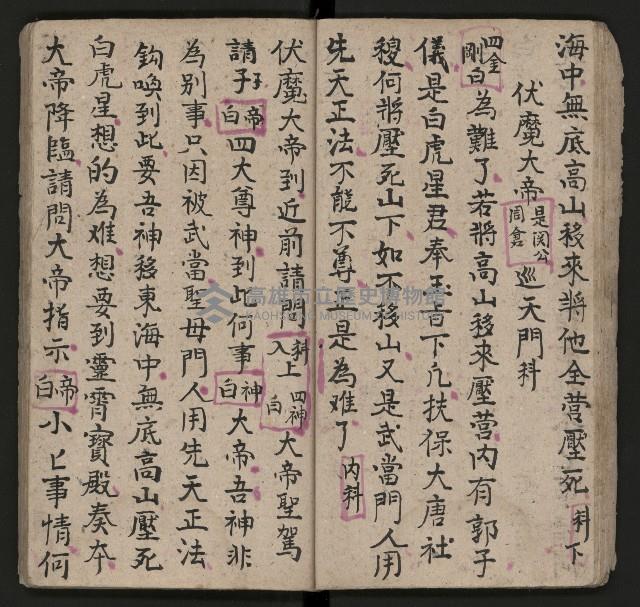 海中無底高山移來將他全營壓死 科下
伏魔大帝 是関公 周倉 巡天門科
四金剛白 為難了若將高山移來壓营内有郭子
儀是白虎星君奉玉旨下凡扶保大唐社
稷何將壓死山下如不移山又是武當門人用
先天正法不能不尊正是為难了 内科
伏魔大帝到近前請問 科 入上 四神白 大帝聖駕
請了 帝白 四大尊神到此何事 神白 大帝吾神非
為别事只因被武當聖母門人用先天正法
鈎喚到此要吾神移東海中無底高山壓死
白虎星想的為难想要到靈霄寳殿奏本
大帝降臨請問大帝指示 帝白 小匕事情何
高雄市立歷史博物館
KAOHSIUNG MUSEUM OF HISTORY